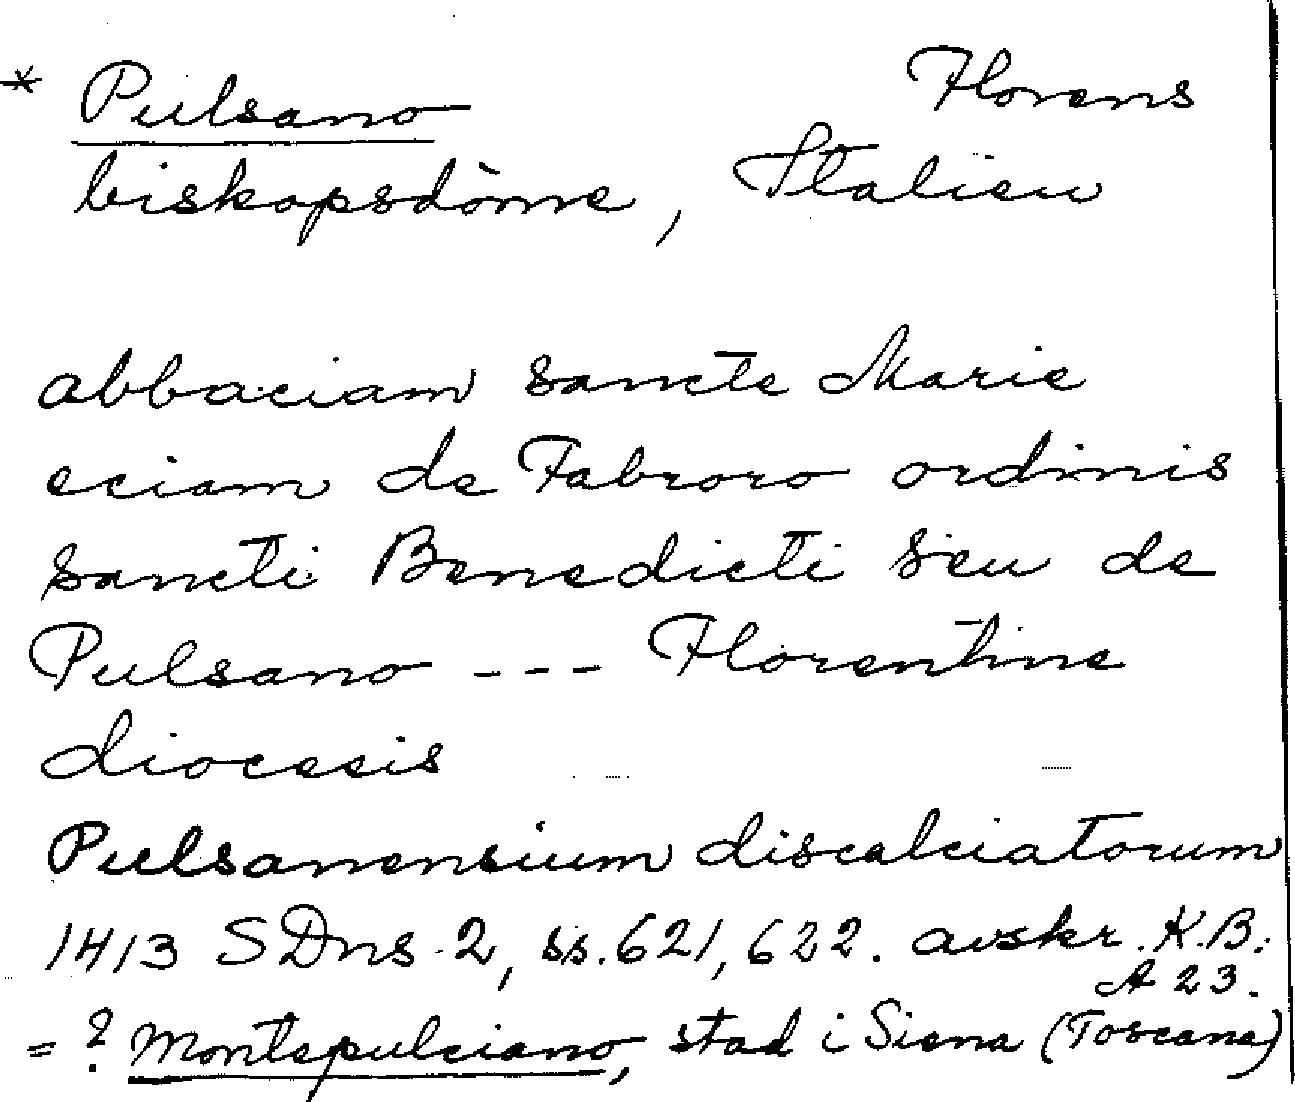 * Pulsano Florens
biskopsdöme, Italien
abbaciam sancte Marie
eciam de Fabroro ordinis
sancti Benedicti seu de
Pulsano --- Florentine
diocesis
Pulsanensium discalciatorum
1413 SDns 2, ss. 621, 622. avskr. K.B.
A 23.
= ? Montepulciano, stad i Siena (Toscana)